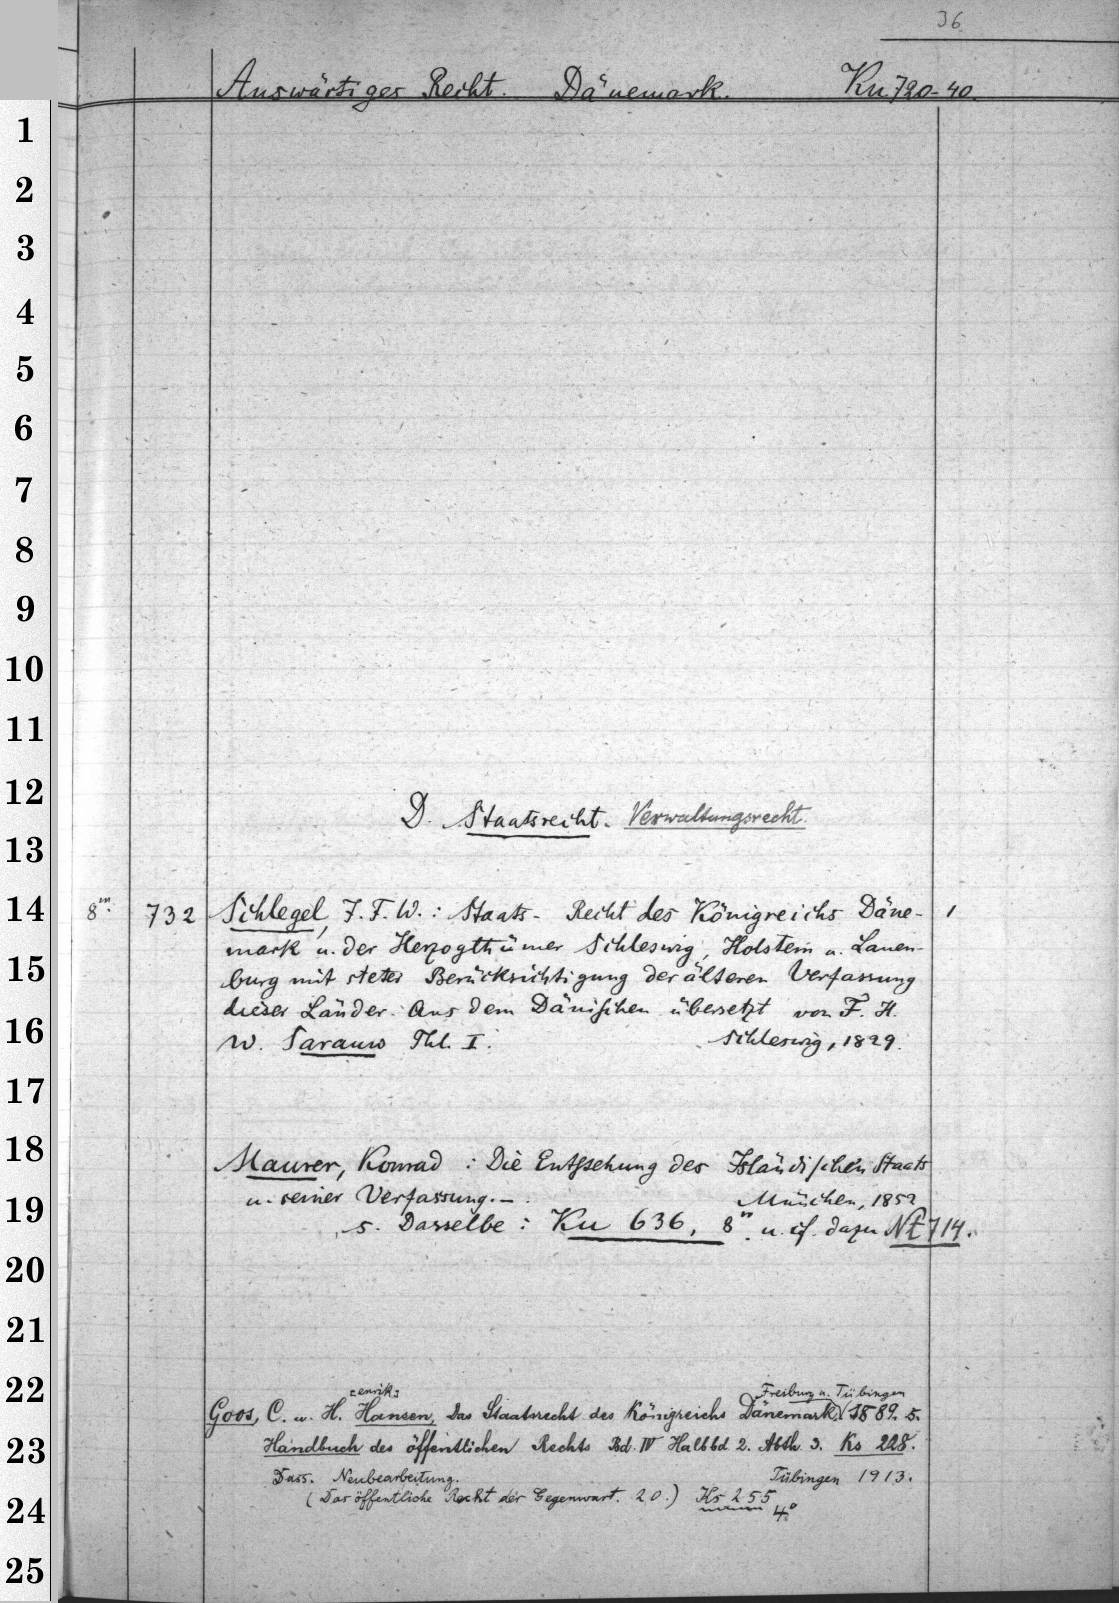 36
Auswärtiges Recht. Dänemark. Ku 720-40.
1
2
3
4
5
6
7
8
9
10
11
12
D. Staatsrecht. Verwaltungsrecht.
13
14
8m. 732 Schlegel, J. F. W.: Staats-Recht des Königreichs Däne- 1
mark u. der Herzogthümer Schleswig, Holstein u. Lauen-
15
burg mit steter Berücksichtigung der älteren Verfassung
dieser Länder. Aus dem Dänischen übersetzt von F. H.
16
W. Sarauw Thl. I. Schleswig, 1829.
17
18
Maurer, Konrad: Die Entstehung des Isländischen Staats
u. seiner Verfassung. — München, 1852
19
s. Dasselbe: Ku 636, 8m. u. cf. dazu Nt 714.
20
21
22
[enrik] Freiburg u. Tübingen
Goos, C. u. H. Hansen, Das Staatsrecht des Königreichs Dänemark. 1889. s.
23
Handbuch des öffentlichen Rechts Bd. IV Halbbd 2. Abth. 3. Ks 228.
Dass. Neubearbeitung. Tübingen 1913.
(Das öffentliche Recht der Gegenwart. 20.) Ks 255 4°
24
25